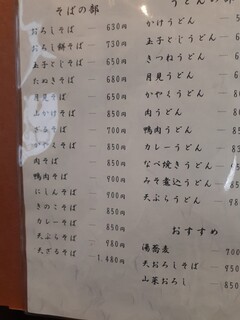 そばの部
おろしそば 630円
おろし餅そば 730円
玉子とじそば 650円
たぬきそば 680円
月見そば 650円
山かけそば 850円
ざるそば 700円
かやくそば 850円
肉そば 850円
鴨肉そば 900円
にしんそば 900円
きのこそば 850円
カレーそば 850円
天ぷらそば 980円
天ざるそば 1,480円
うどんの部
かけうどん
玉子とじうどん
きつねうどん
月見うどん
かやくうどん
肉うどん
鴨肉うどん
カレーうどん
なべ焼きうどん
みそ煮込うどん
天ぷらうどん
おすすめ
湯蕎麦 700
天おろしそば
山菜おろし 850